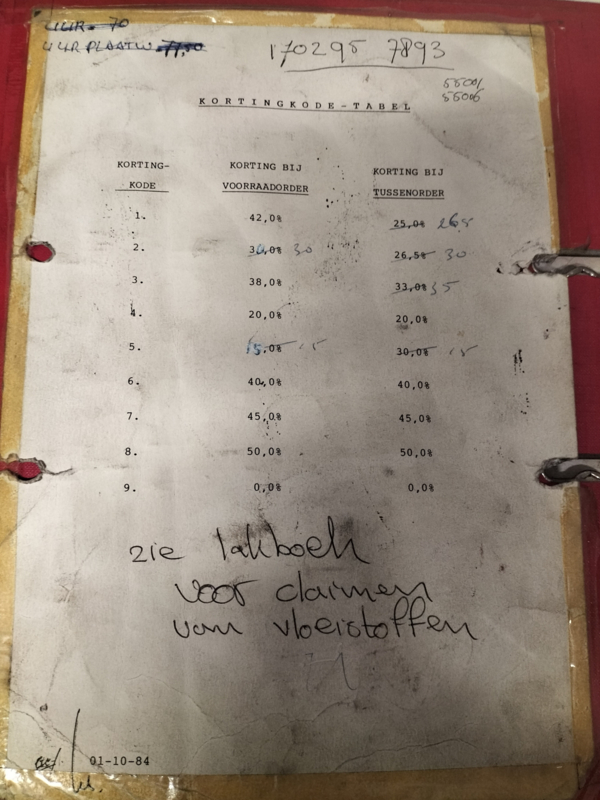 UUR. 70
UUR PLAATW.
170295 7893
55001
55006
KORTINGKODE-TABEL
KORTING- KORTING BIJ KORTING BIJ
KODE VOORRAADORDER TUSSENORDER
1. 42,0% 25,0%
2. 30 26,5% 30
3. 38,0% 33,0% 35
4. 20,0% 20,0%
5. 15,0% 15 30,0% 15
6. 40,0% 40,0%
7. 45,0% 45,0%
8. 50,0% 50,0%
9. 0,0% 0,0%
zie lakboek
voor claimen
van vloeistoffen
01-10-84